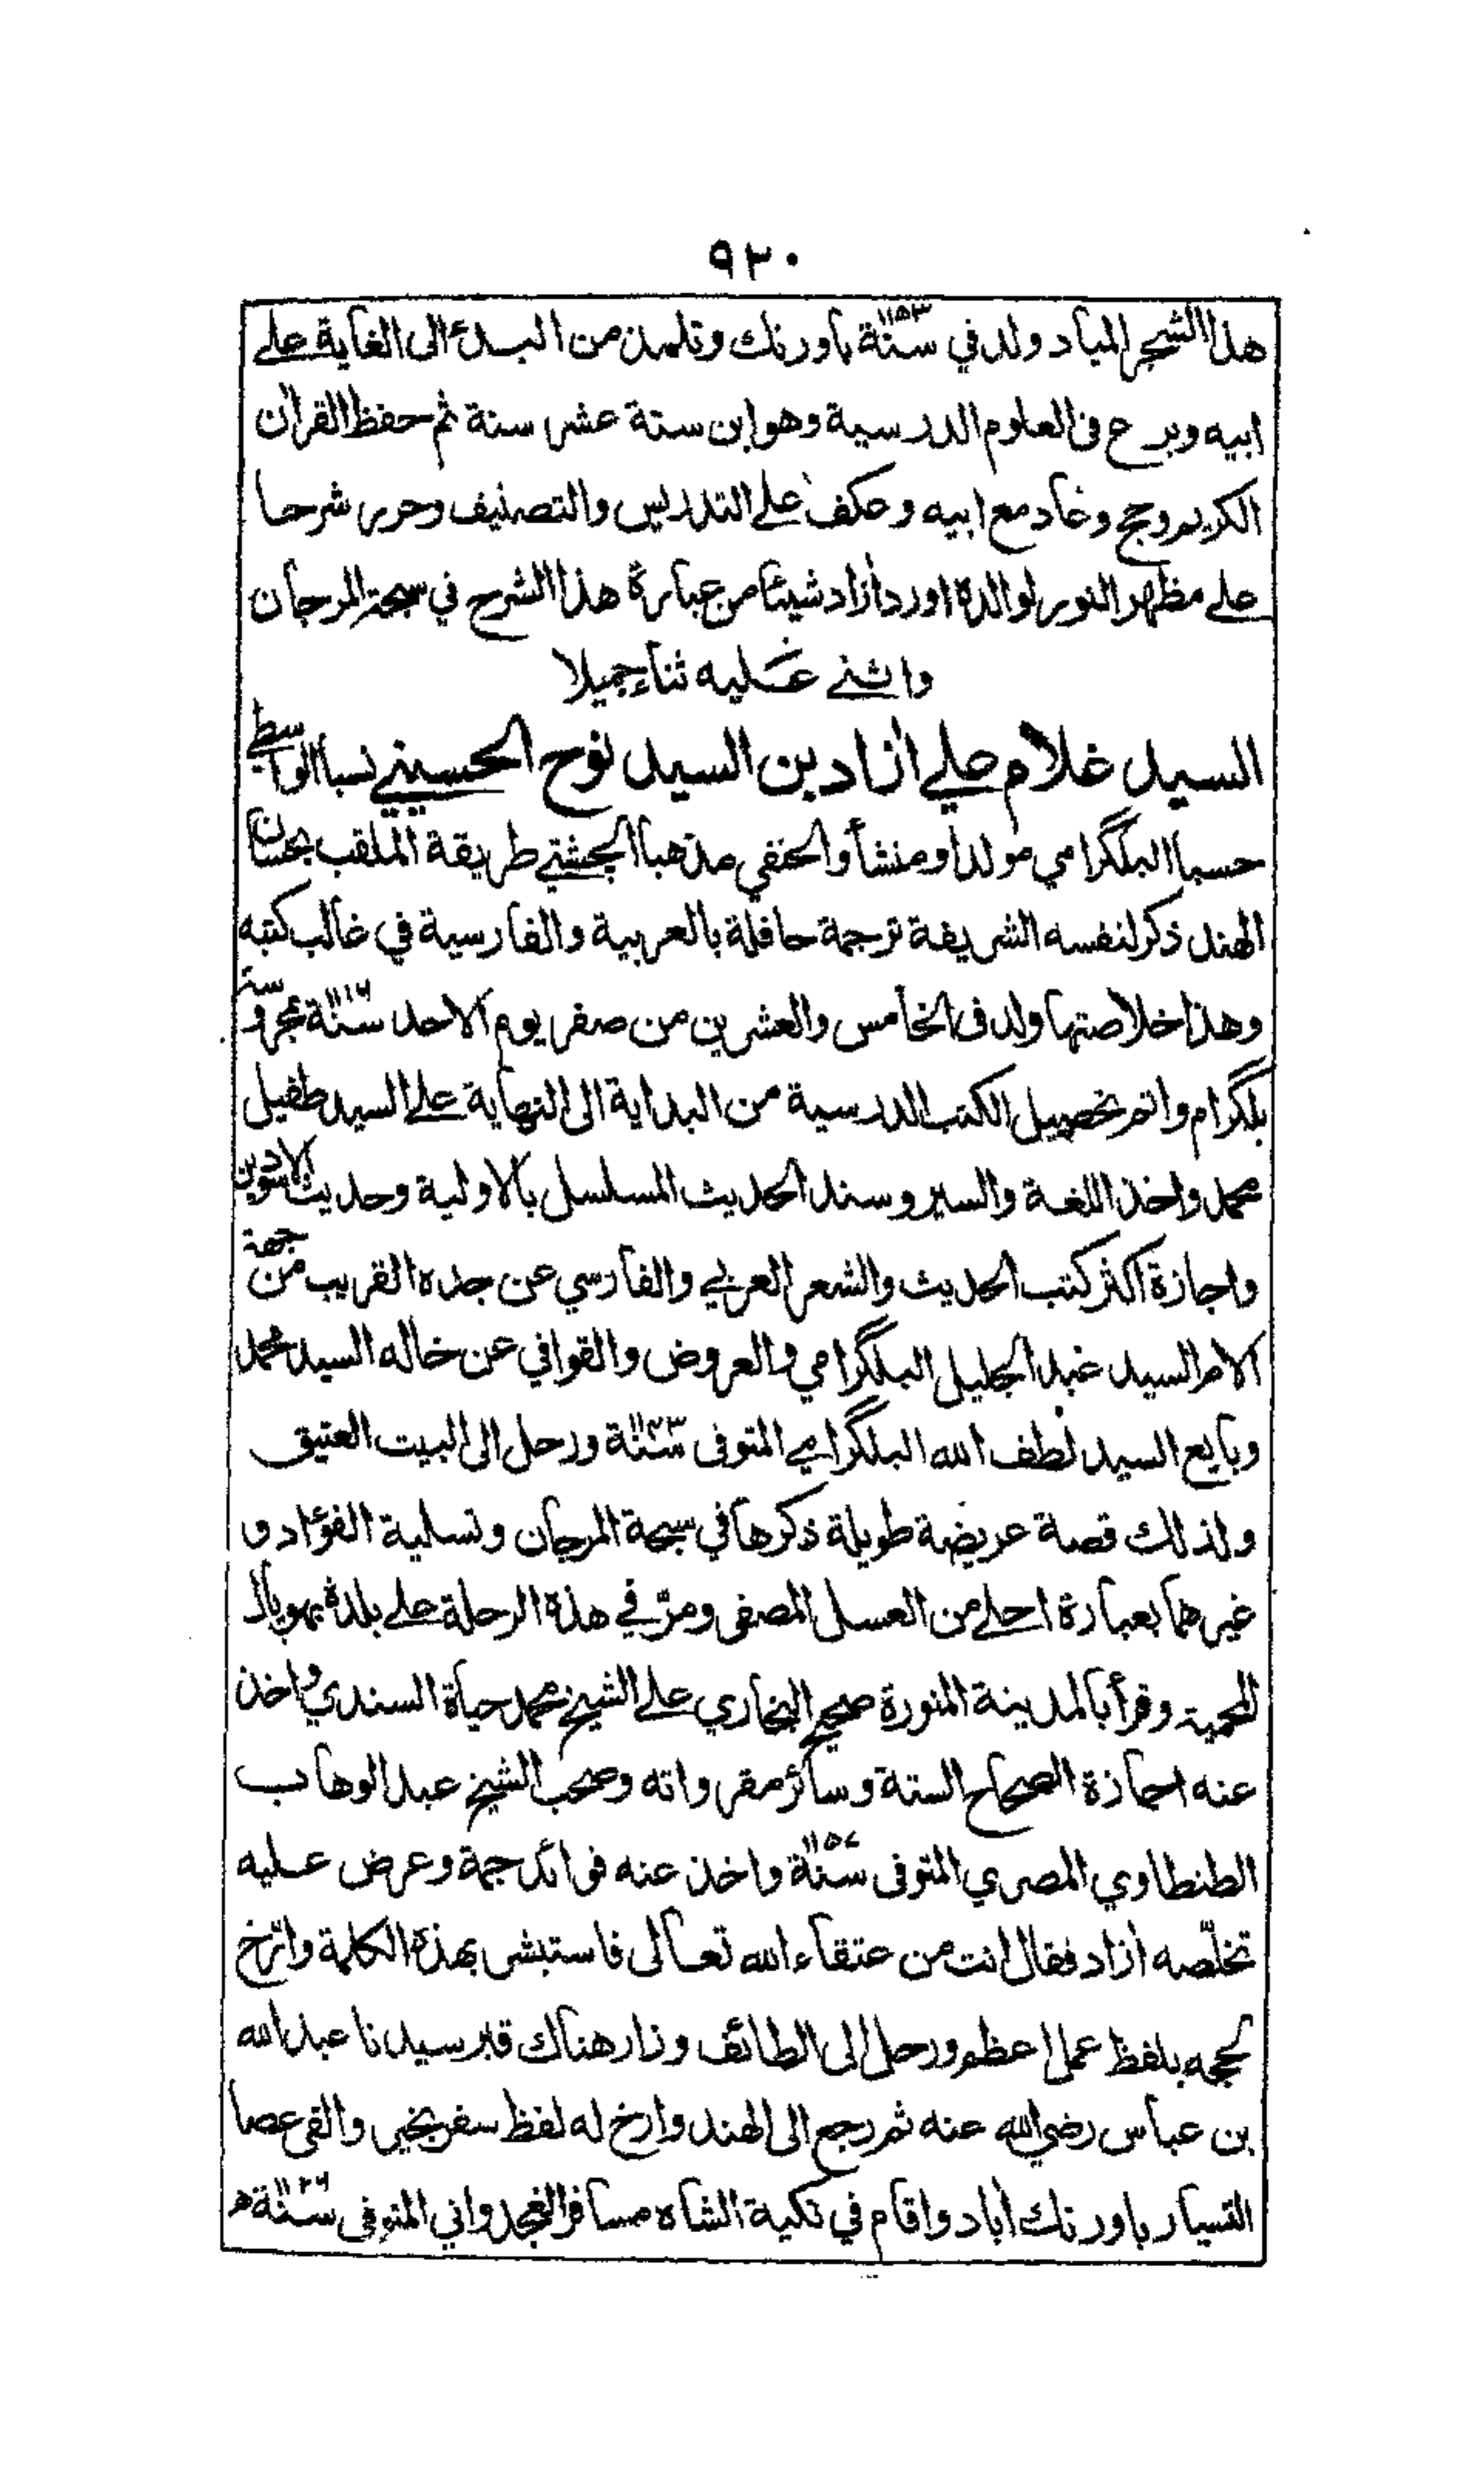 ٩٣٠
هذا الشجر المياد ولد في سنة ١١٥٣ باورنك وتلمذ من البدء الى الغاية على
ابيه وبرع في العلوم الدرسية وهو ابن ستة عشر سنة ثم حفظ القرآن
الكريم وحج وعاد مع ابيه وعكف على التدريس والتصنيف وحرر شرحا
على مظهر النور لوالده اورد آزاد شيئا من عبارة هذا الشرح في سبحة المرجان
واثنى عليه ثناء جميلا
السيد غلام علي آزاد بن السيد نوح الحسيني نسبا الواسطي
حسبا البلگرامي مولدا ومنشأ والحنفي مذهبا الچشتي طريقة الملقب بحسان
الهند ذكر لنفسه الشريفة ترجمة حافلة بالعربية والفارسية في غالب كتبه
وهذا خلاصتها ولد في الخامس والعشرين من صفر يوم الاحد سنة ١١١٦ بمحروسة
بلگرام واتم تحصيل الكتب الدرسية من البداية الى النهاية على السيد طفيل
محمد واخذ اللغة والسير وسند الحديث المسلسل بالاولية وحديث الاسودين
واجازة اكثر كتب الحديث والشعر العربي والفارسي عن جده القريب من جهة
الام السيد عبد الجليل البلگرامي والعروض والقوافي عن خاله السيد محمد
وبايع السيد لطف الله البلگرامي المتوفى سنة ورحل الى البيت العتيق
ولذلك قصة عريضة طويلة ذكرها في سبحة المرجان وتسلية الفؤاد و
غيرهما بعبارة احلى من العسل المصفى ومرّ في هذه الرحلة على بلدة بهوپال
المحمية وقرأ بالمدينة المنورة صحيح البخاري على الشيخ محمد حياة السندي واخذ
عنه اجازة الصحاح الستة وسائر مقرواته وصحب الشيخ عبد الوهاب
الطنطاوي المصري المتوفى سنة ١١٥٧ واخذ عنه فوائد جمة وعرض عليه
تخلّصه آزاد فقال انت من عتقاء الله تعالى فاستبشر بهذه الكلمة وارّخ
لحجه بلفظ عمل اعظم ورحل الى الطائف وزار هناك قبر سيدنا عبد الله
بن عباس رضي الله عنه ثم رجع الى الهند وارخ له لفظ سفر بخير والقى عصا
التسيار باورنك آباد واقام في تكية الشاه مسافر الغجدواني المتوفى سنة ١١٢٦ه